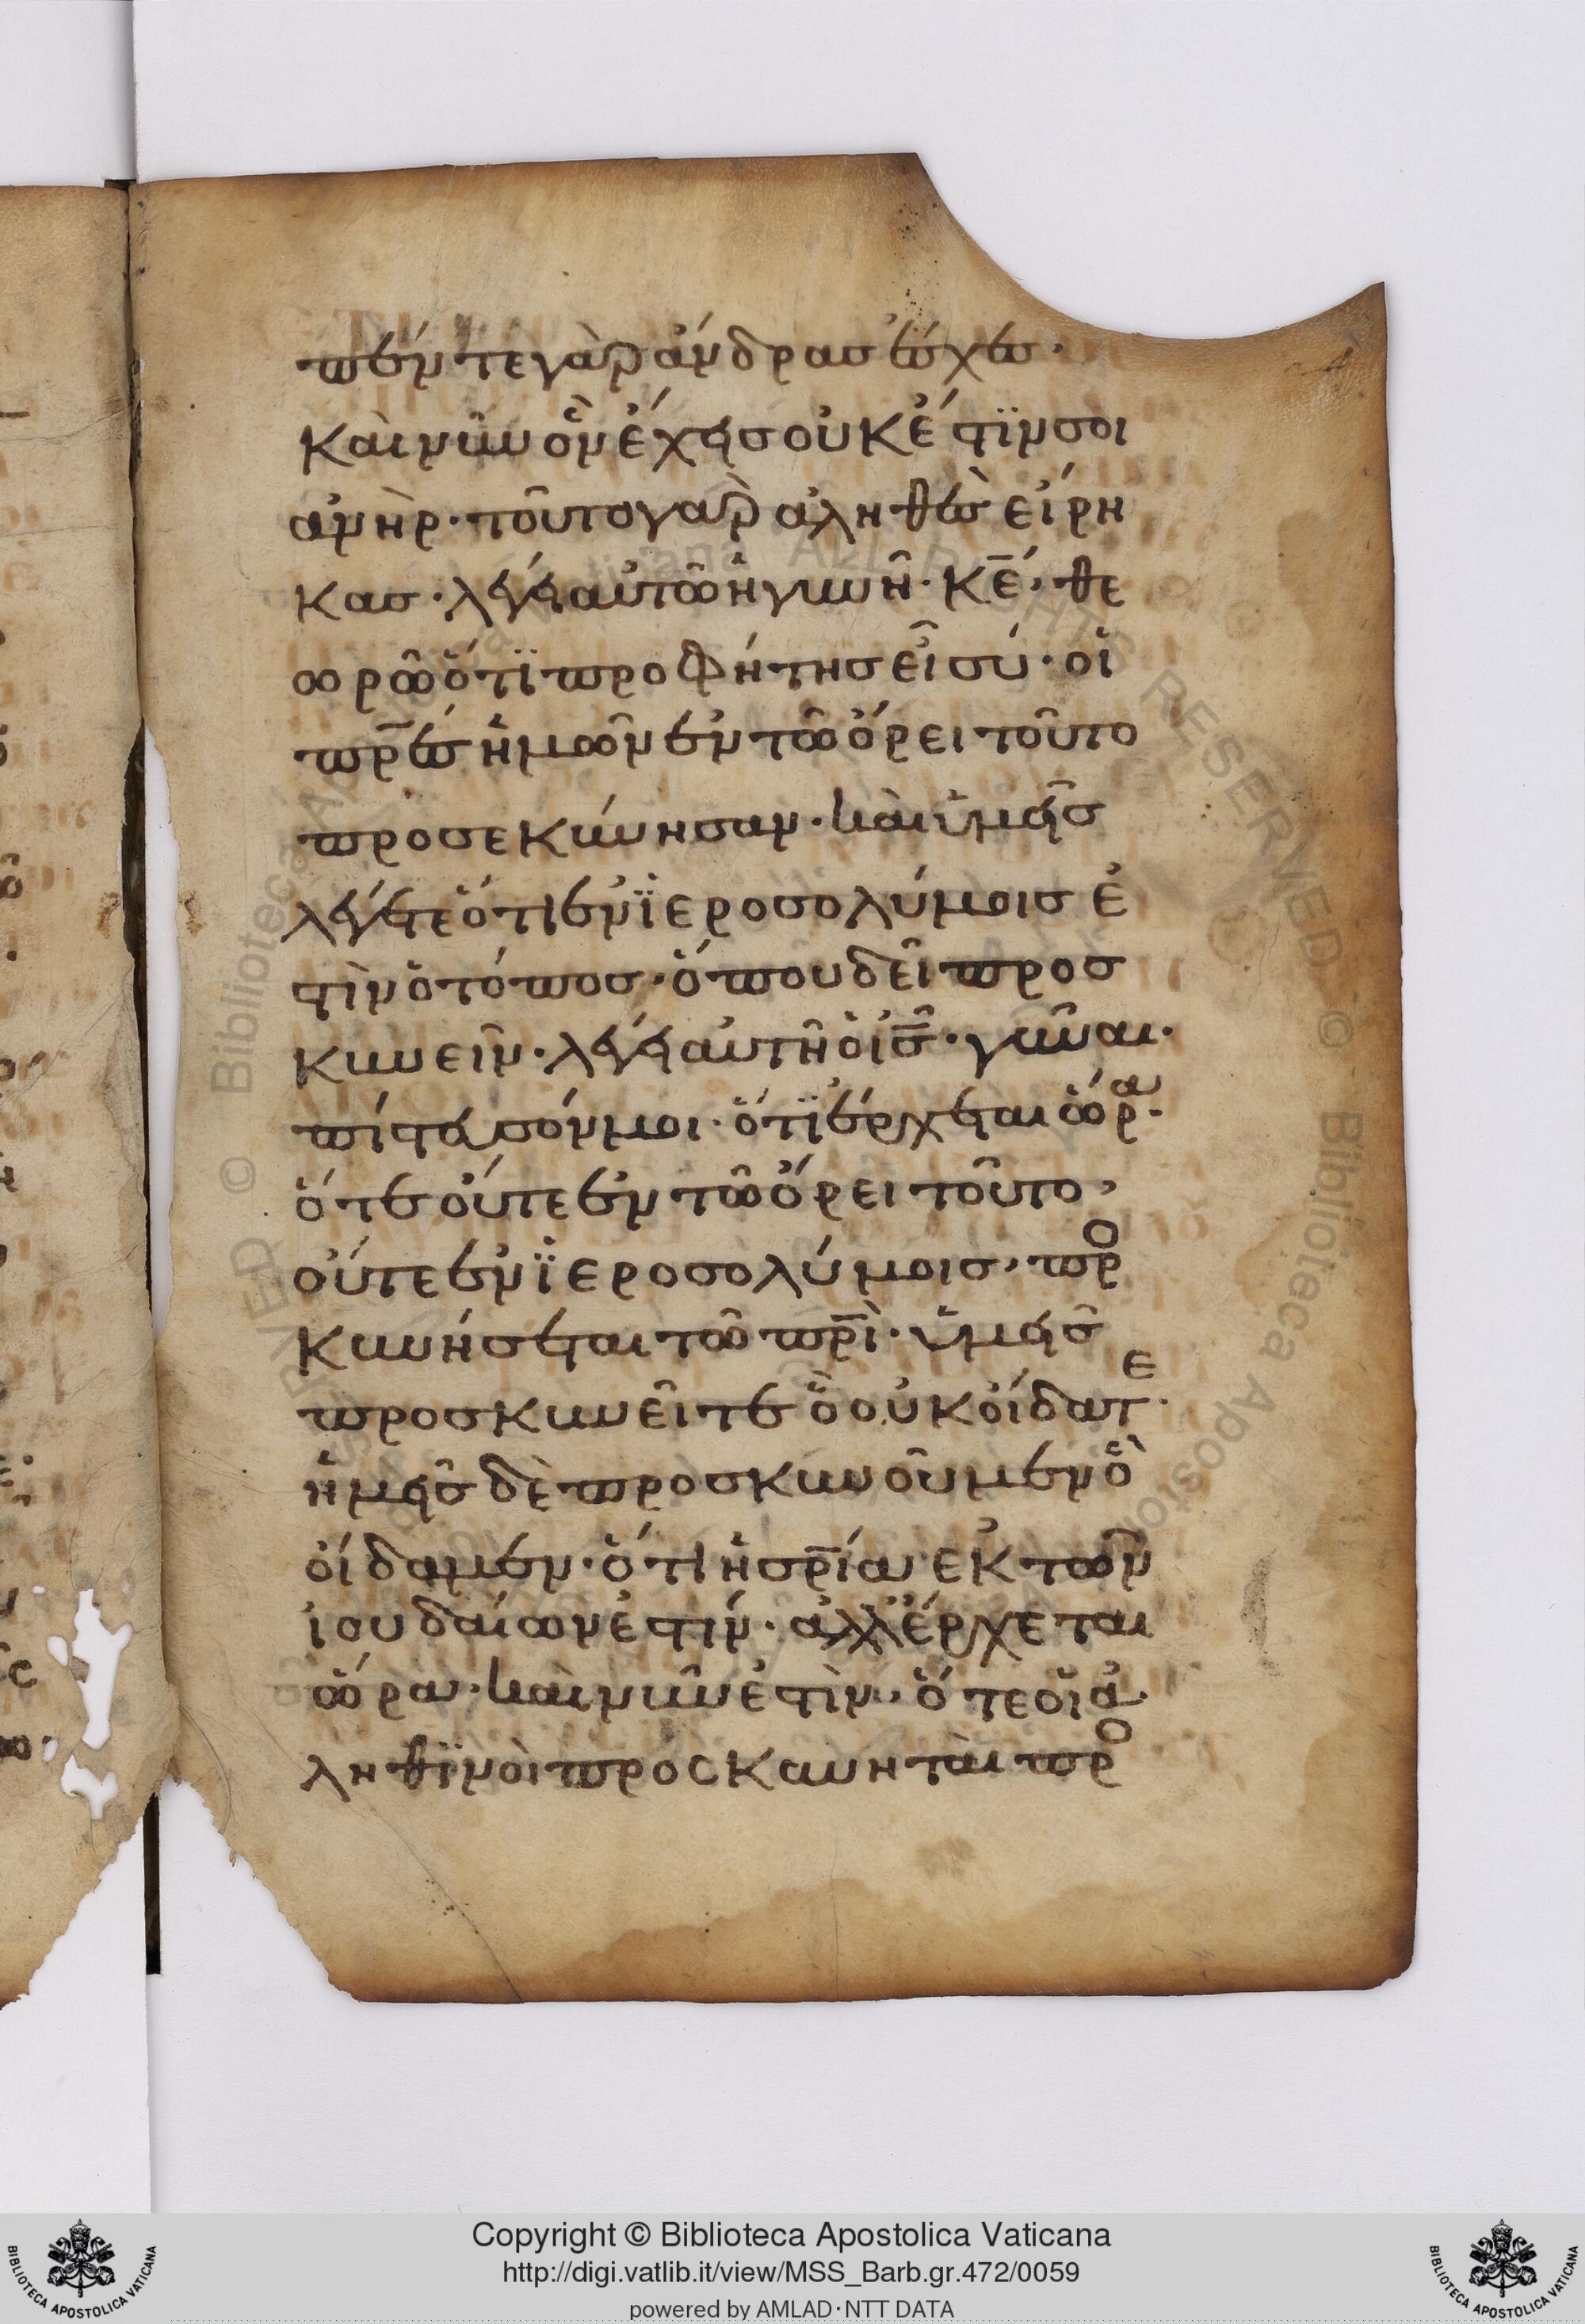 πέντε γὰρ ἄνδρας ἔσχες·
Καὶ νῦν ὃν ἔχεις οὐκ ἔστϊν σοι
ἀνὴρ· τοῦτο γὰρ ἀληθὲς εἴρη
κας· λέγει αὐτῶ ἡ γυνῆ· κ̅ε̅, θε
ωρῶ ὅτϊ προφήτης εἶ σύ· οἱ
π̅ρ̅ε̅ς ἡμῶν ἐν τῶ ὄρει τοῦτο
προσεκύνησαν· καὶ ὑμεῖς
λέγετε ὅτι ἐν ϊεροσολύμοις ἐ
στὶν ὁ τόπος· ὅπου δεῖ προς
κυνεῖν· λέγει αὐτῆ ὁ ι̅ς̅· γῦναι·
πίστευσόν μοι· ὅτϊ ἔρχεται ὥρα·
ὅτε οὔτε ἐν τῶ ὄρει τοῦτο,
οὔτε ἐν ϊεροσολύμοις, προ
κυνήσεται τῶ π̅ρ̅ι̅· ὑμεῖς
προσκυνεῖτε ὃ οὐκ οἴδατε·
ἡμεῖς δὲ προσκυνοῦμεν ὃ
οἴδαμεν· ὅτι ἡ σ̅ρ̅ία ἐκ τῶν
ἰουδαίων ἐστίν· ἀλλ' ἔρχεται
ὥρα· καὶ νῦν ἐστὶν, ὅτε οἱ ἀ
ληθϊνοὶ προσκυνηταὶ προ
Copyright © Biblioteca Apostolica Vaticana
http://digi.vatlib.it/view/MSS_Barb.gr.472/0059
powered by AMLAD·NTT DATA
BIBLIOTECA APOSTOLICA VATICANA
BIBLIOTECA APOSTOLICA VATICANA